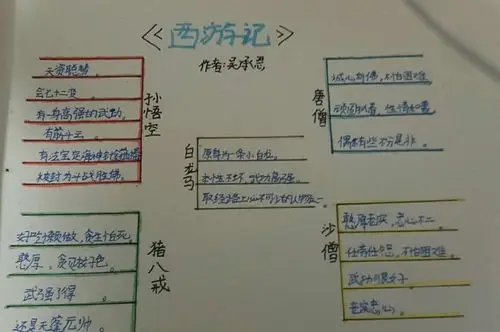 《西游记》
作者:吴承恩
孙悟空
天资聪慧。
会七十二变
有一身高强的武功。
有筋斗云。
有法宝定海神针
被封为斗战胜佛。
唐僧
诚心向佛,不怕困难
顽固执着,性情和善
偶尔有些不分是非。
白龙马
原身为一条小白龙。
本性不坏,武功高强。
取经路上必不可少的人物之一
猪八戒
好吃懒做,贪生怕死。
憨厚,贪财好色。
武功了得
还是天蓬元帅。
沙僧
憨厚老实,忠心不二。
任劳任怨,不怕困难。
武功很好
老实忠心。